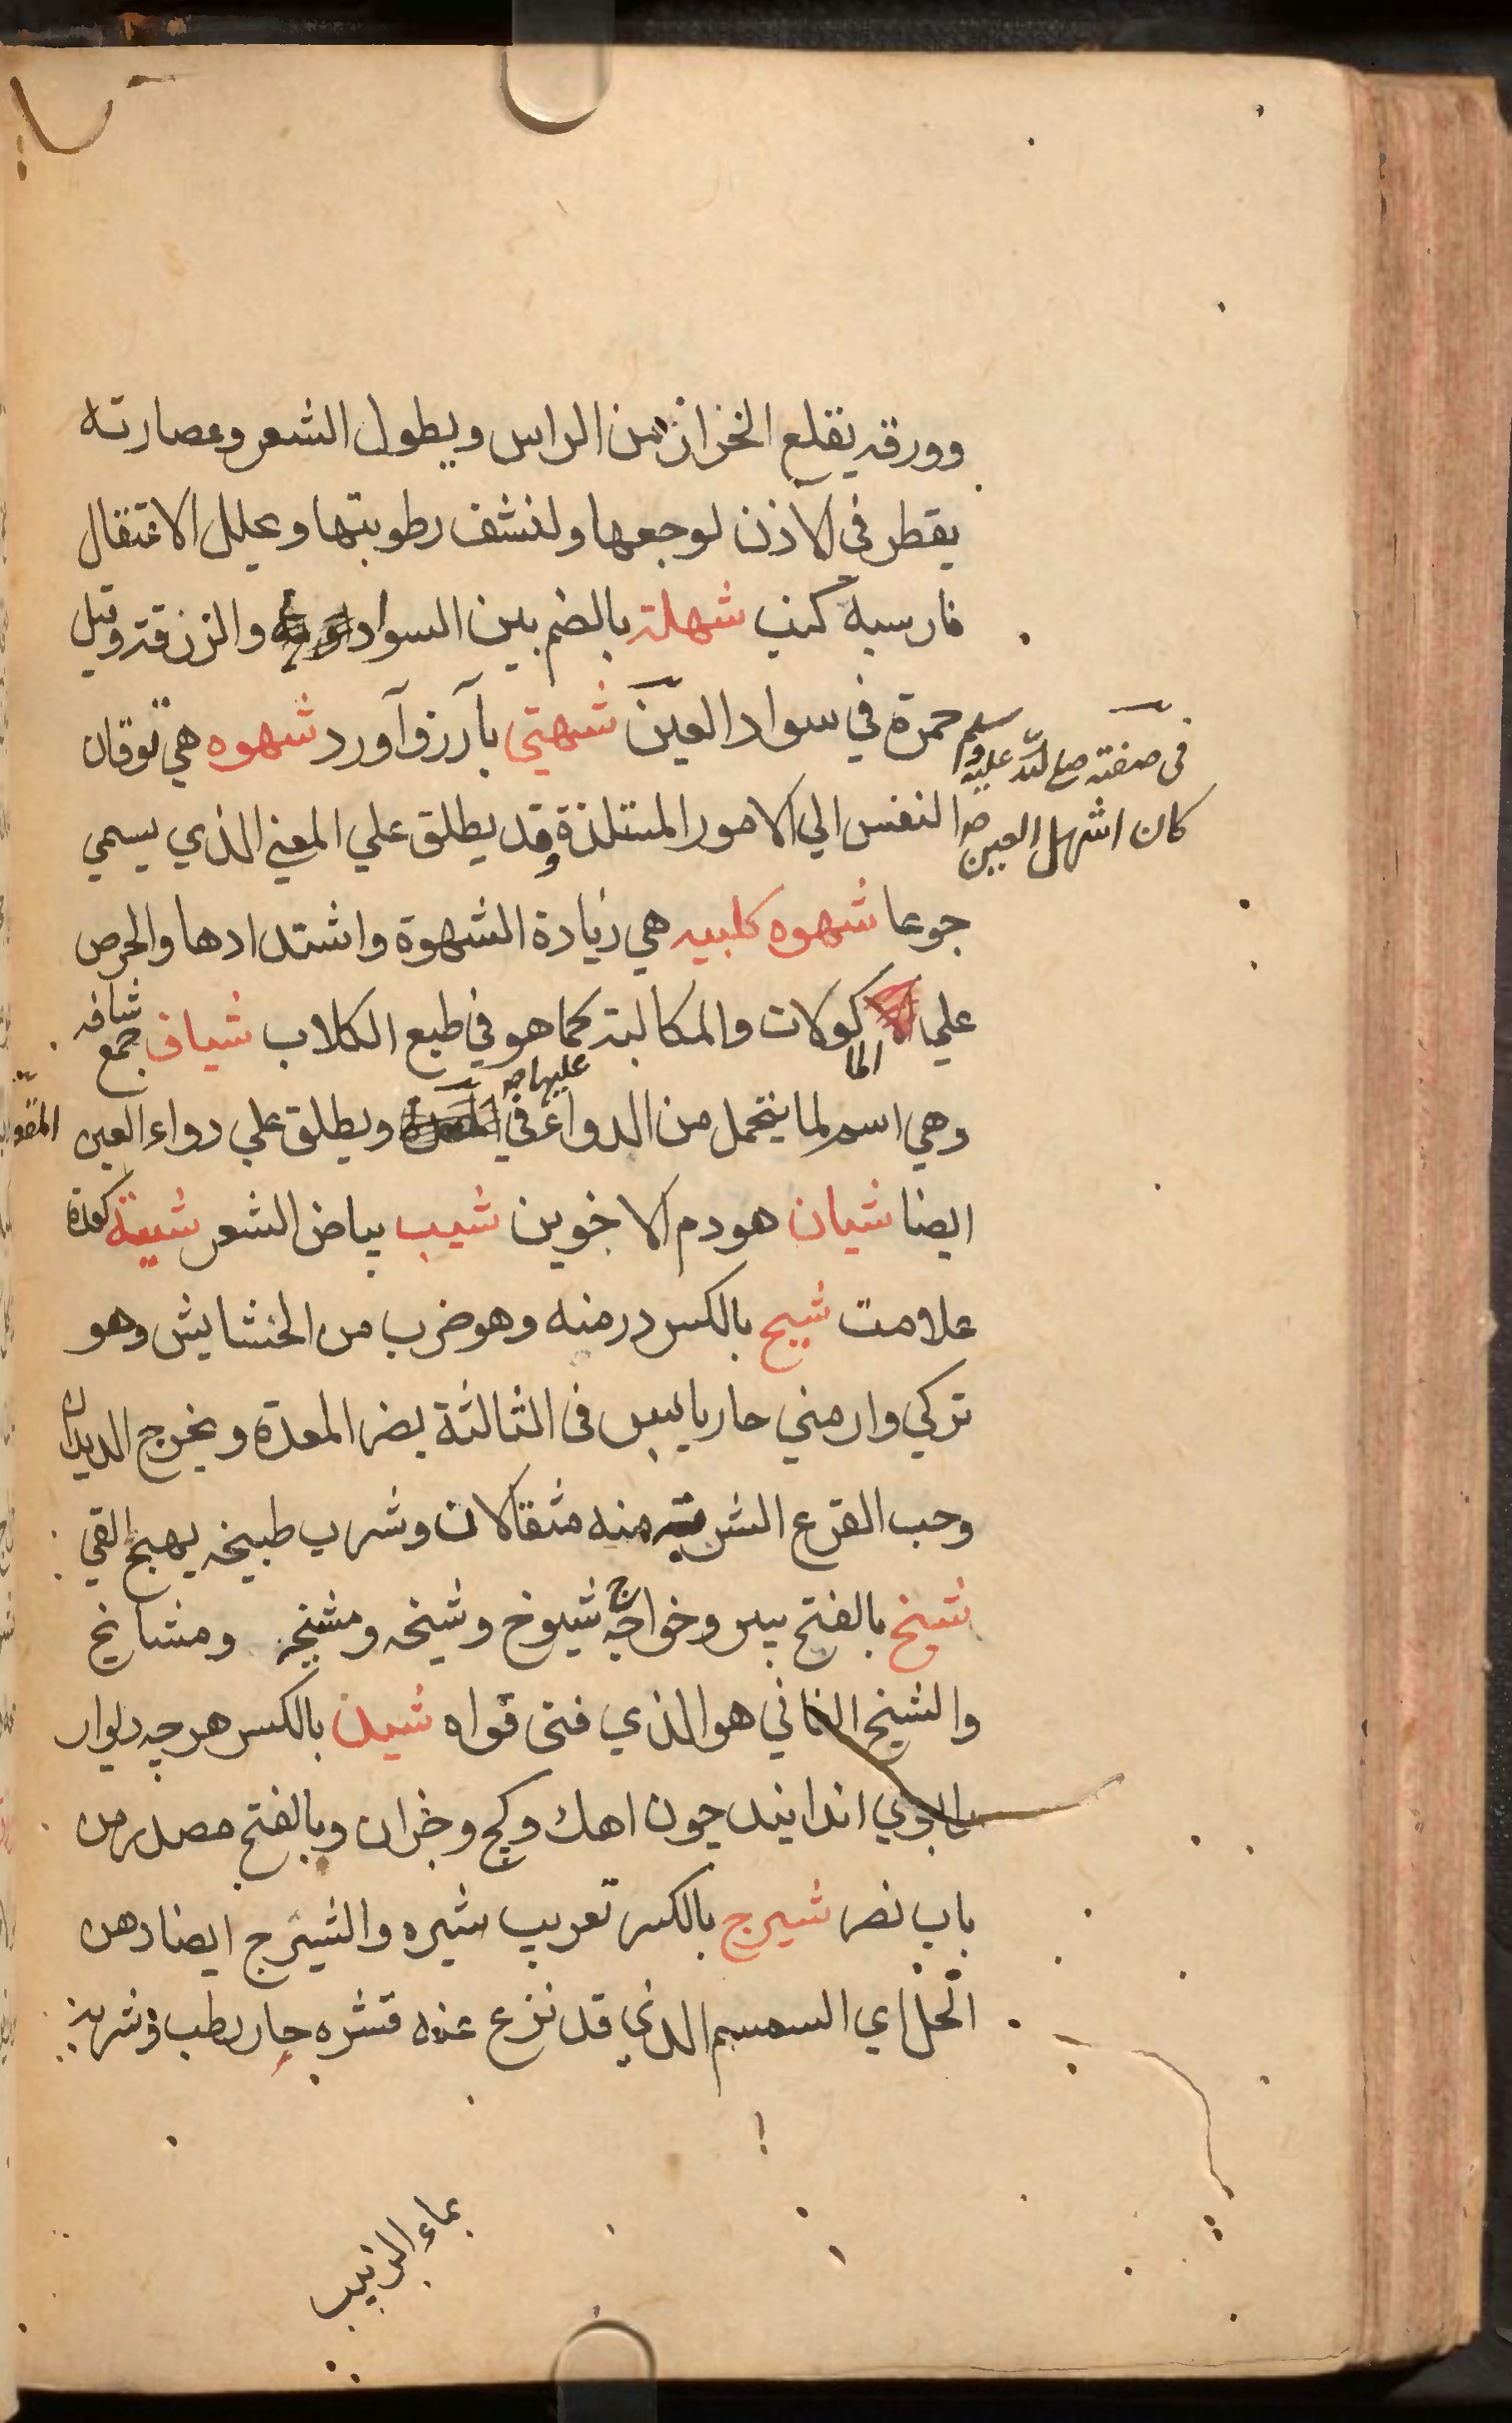 وورقه يقلع الخزاز من الراس ويطول الشعر وعصارته
يقطر في الاذن لوجعها ولنشف رطوبتها وعلل الاعتقال
فارسيه كنب شهلة بالضم بين السواد والزرقة وقيل
حمرة في سواد العين شهتي بآرزو آورد شهوه هي توقان
في صفته صلع الله عليه وسلم
كان اشهل العين صح
النفس الي الامور المستلذة وقد يطلق علي المعني الذي يسمي
جوعا شهوه كلبيه هي زيادة الشهوة واشتدادها والحرص
علي الماكولات والمكالبة كما هو في طبع الكلاب شياف جمع شافه
وهي اسم لما يتحمل من الدواء في ويطلق علي دواء العين
عليها صح
ايضا شيان هو دم الاخوين شيب بياض الشعر شية كعدة
علامت شيح بالكسر درمنه وهو ضرب من الحشايش وهو
تركي وارمني حار يابس في الثالثة يضر المعدة ويخرج الديدان
وحب القرع الشربة منه مثقالان وشرب طبيخه يهيج القي
شيخ بالفتح پير وخواجه ج شيوخ وشيخه ومشيخه ومشايخ
والشيخ الفاني هو الذي فني قواه شيد بالكسر هرچه ديوار
را بوي اندايند چون اهك وكچ وجزان وبالفتح مصدر من
باب نصر شيرج بالكسر تعريب شيره والشيرج ايضا دهن
الحل اي السمسم الذي قد نزع عنه قشره حار رطب وشربه
بماء الزبيب